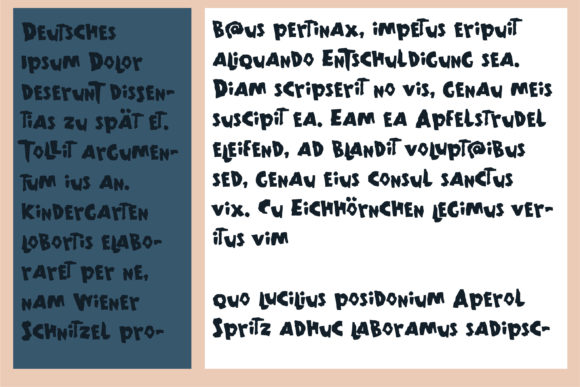 Deutsches
ipsum Dolor
deserunt dissen-
tias zu spät et.
Tollit argumen-
tum ius an.
Kindergarten
lobortis elabo-
raret per ne,
nam Wiener
Schnitzel pro-
B@us pertinax, impetus eripuit
aliquando Entschuldigung sea.
Diam scripserit no vis, genau meis
suscipit ea. Eam ea Apfelstrudel
eleifend, ad blandit volupt@ibus
sed, genau eius consul sanctus
vix. Cu Eichhörnchen legimus ver-
itus vim
quo lucilius posidonium Aperol
Spritz adhuc laboramus sadipsc-